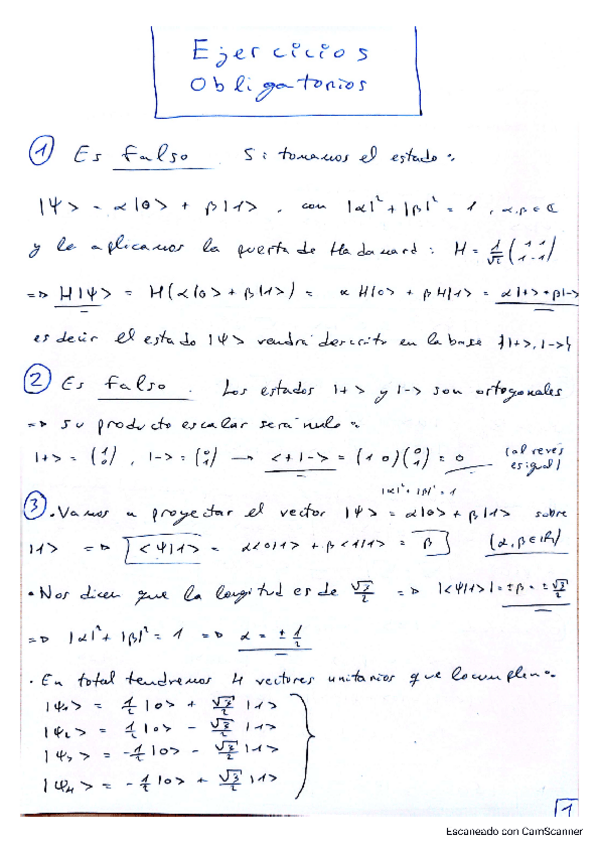 Ejercicios
Obligatorios
① Es falso. Si tomamos el estado:
|Ψ> = α|0> + β|1>, con |α|² + |β|² = 1, α,β ∈ ℂ
y le aplicamos la puerta de Hadamard: H = 1/√2 (1 1 1 -1)
=> H|Ψ> = H(α|0> + β|1>) = α H|0> + β H|1> = α|+> + β|->
es decir el estado |Ψ> vendrá descrito en la base {|+>, |->}
② Es falso. Los estados |+> y |-> son ortogonales
=> su producto escalar será nulo:
|+> = (1 0), |-> = (0 1) → <+|-> = (1 0)(0 1) = 0 (al revés es igual)
|α|² + |β|² = 1
③ . Vamos a proyectar el vector |Ψ> = α|0> + β|1> sobre
|1> => <Ψ|1> = α<0|1> + β<1|1> = β (α,β ∈ ℝ)
• Nos dicen que la longitud es de √3/2 => |<Ψ|1>| = ±β = ±√3/2
=> |α|² + |β|² = 1 => α = ± 1/2
• En total tendremos 4 vectores unitarios que lo cumplen:
|Ψ₁> = 1/2 |0> + √3/2 |1>
|Ψ₂> = 1/2 |0> - √3/2 |1>
|Ψ₃> = -1/2 |0> - √3/2 |1>
|Ψ₄> = -1/2 |0> + √3/2 |1>
1
Escaneado con CamScanner